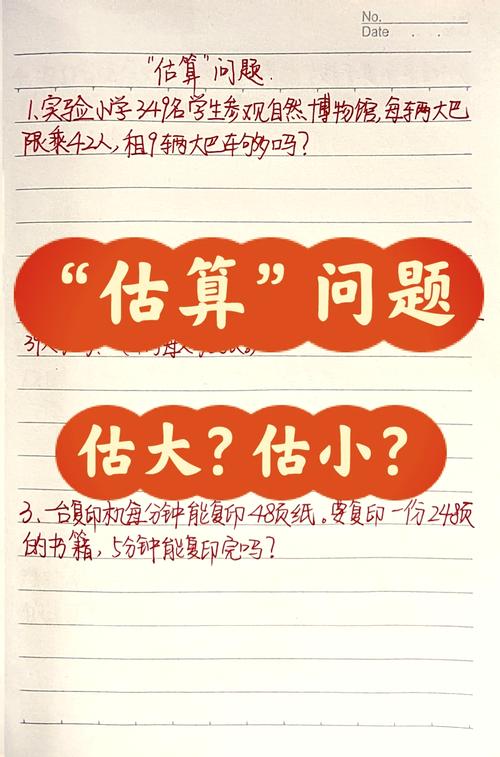 No.
Date
"估算"问题.
1.实验小学349名学生参观自然博物馆,每辆大巴
限乘42人,租9辆大巴车够吗?
“估算”问题
估大?估小?
3、一台复印机每分钟能复印48页纸。要复印一份248页
的书籍,5分钟能复印完吗?